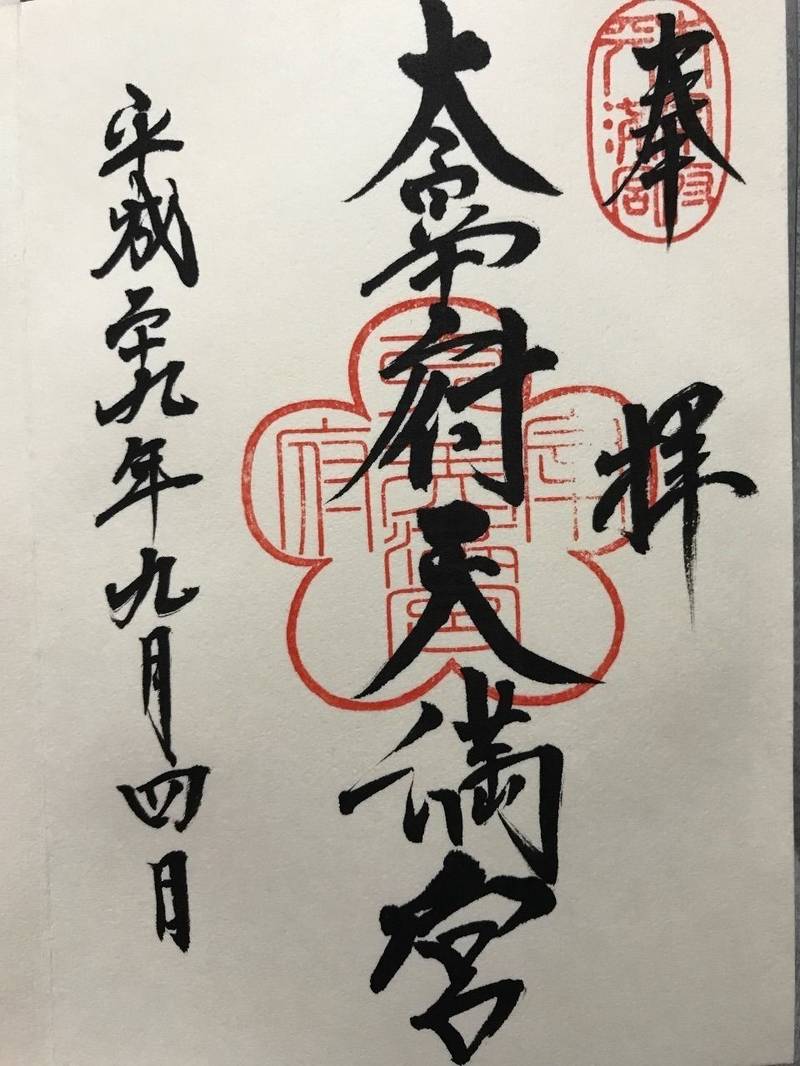 奉拝
太宰府
天満宮
太宰府天満宮
太宰府天満宮
平成二十九年九月四日